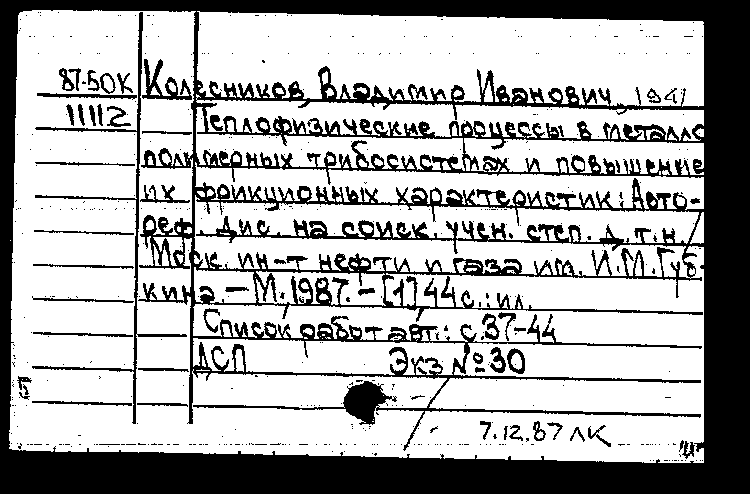 87-50К Колесников, Владимир Иванович, 1941
11112 Теплофизические процессы в металло
полимерных трибосистемах и повышение
их фрикционных характеристик: Авто-
реф. дис. на соиск. учен. степ. д.т.н.
Моск. ин-т нефти и газа им. И.М.Губ-
кина. — М. 1987. — [1] 44 с.: ил.
Список работ авт.: с.37-44
ДСП Экз №30
7.12.87 ЛК